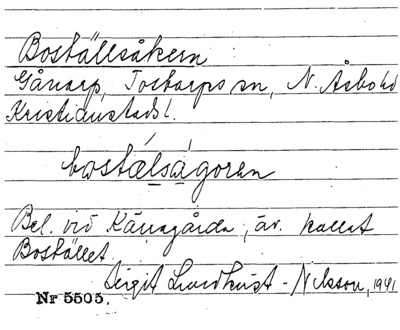 Boställsåkern
Gånarp, Tostarps sn, N. Åsbo hd
Kristianstads l.
bostälságoren
Bel. vid Kärragårda, äv. kallat
Bostället.
Birgit Lundkvist-Nilsson, 1941
Nr 5505.